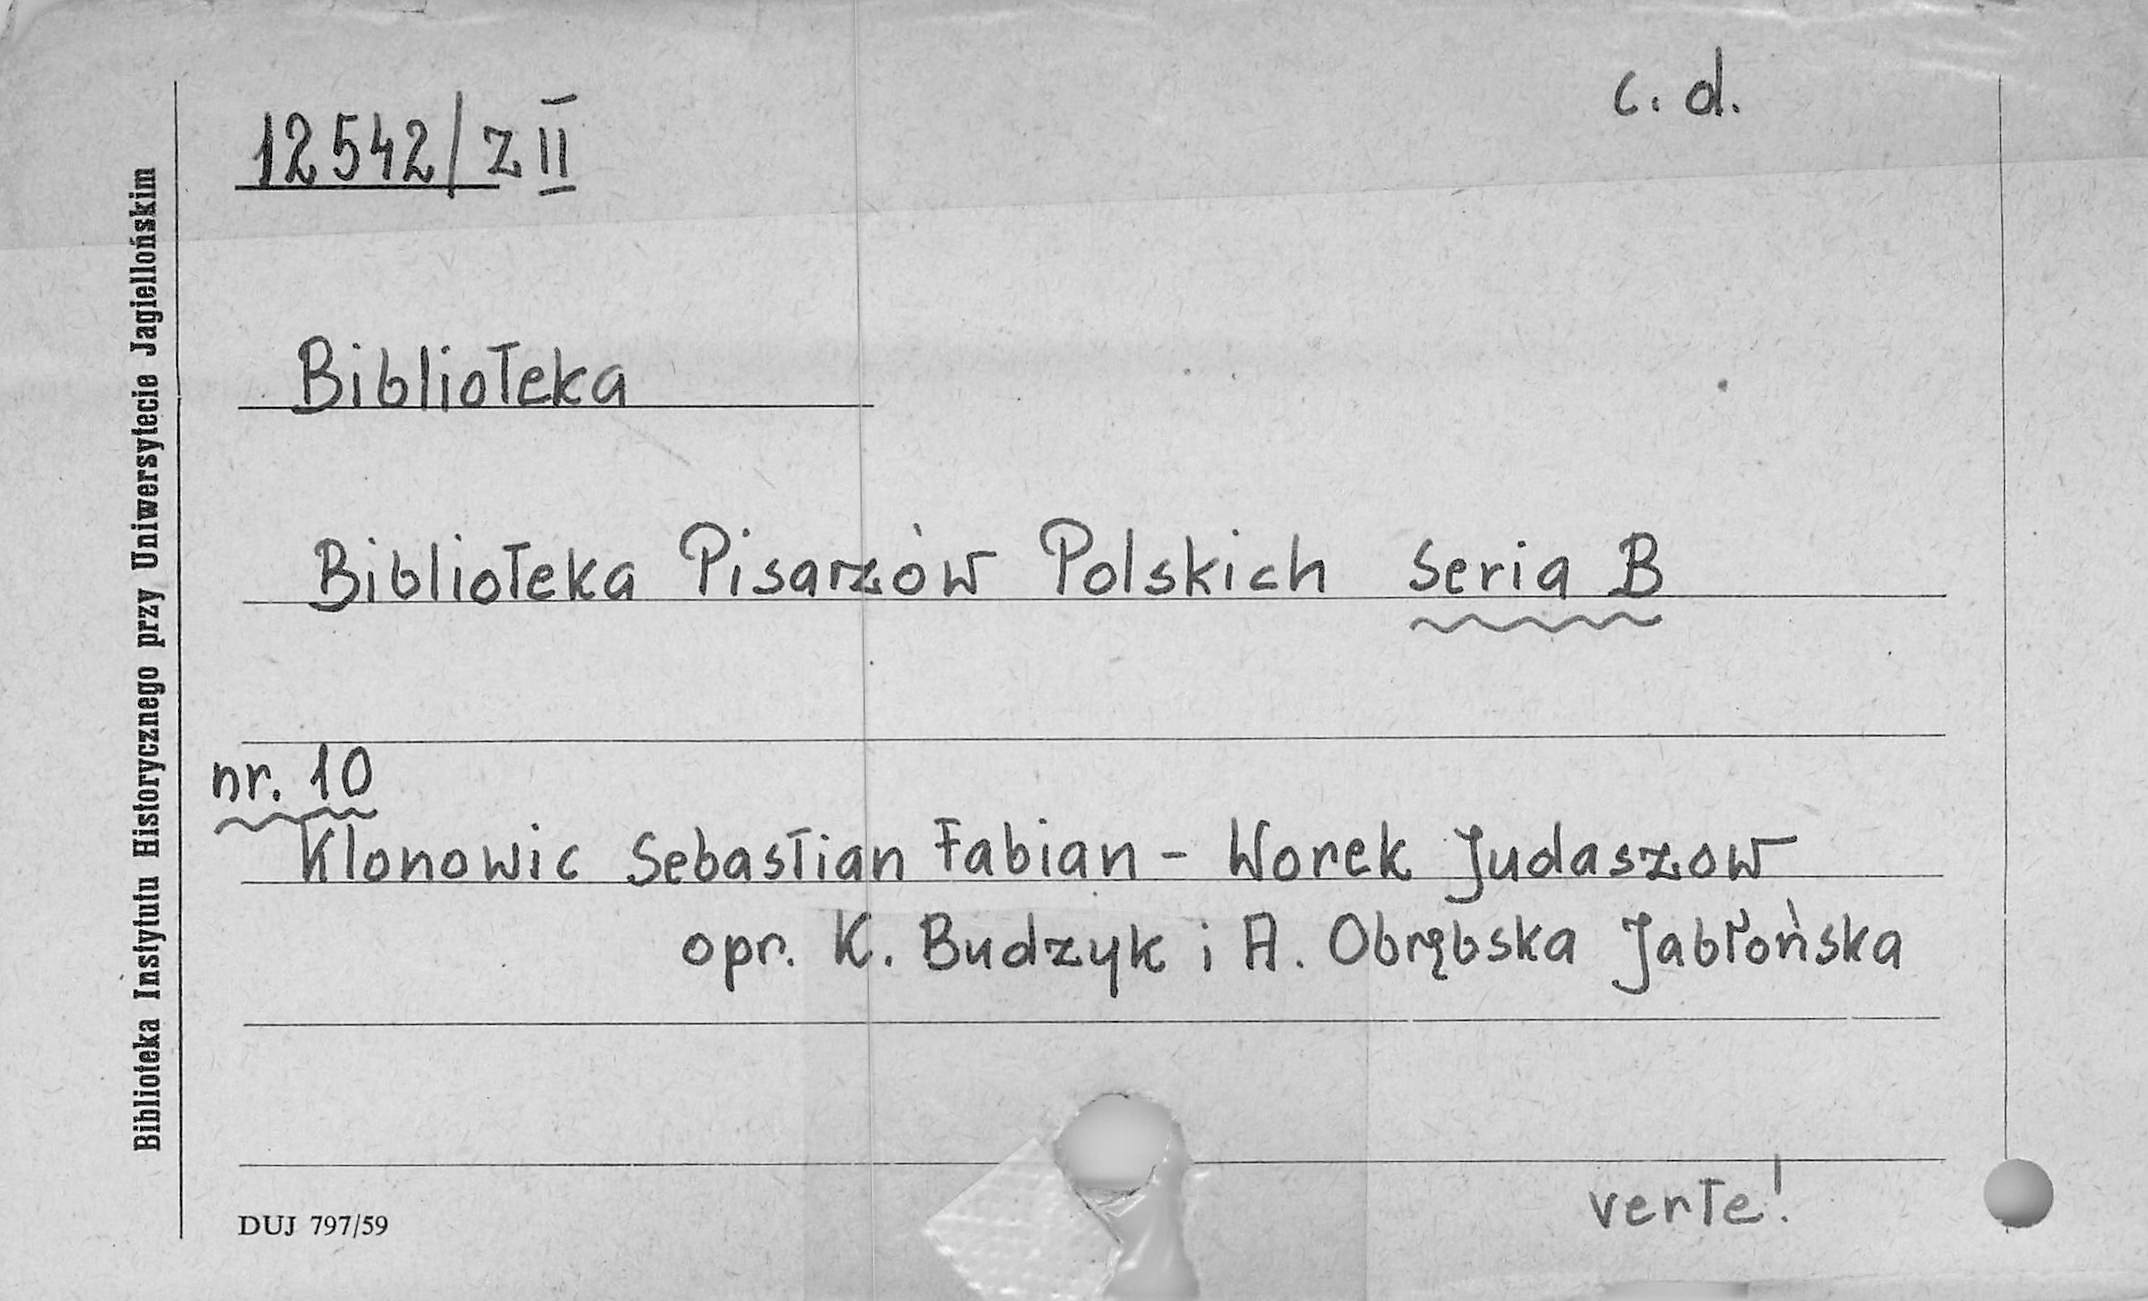 c. d.
12542/z II
Biblioteka
Biblioteka Pisarzów Polskich seria B
nr. 10
Klonowic Sebastian Fabian - Worek Judaszow
opr. K. Budzyk i A. Obrębska Jabłońska
verte!
DUJ 797/59
Biblioteka Instytutu Historycznego przy Uniwersytecie Jagiellońskim